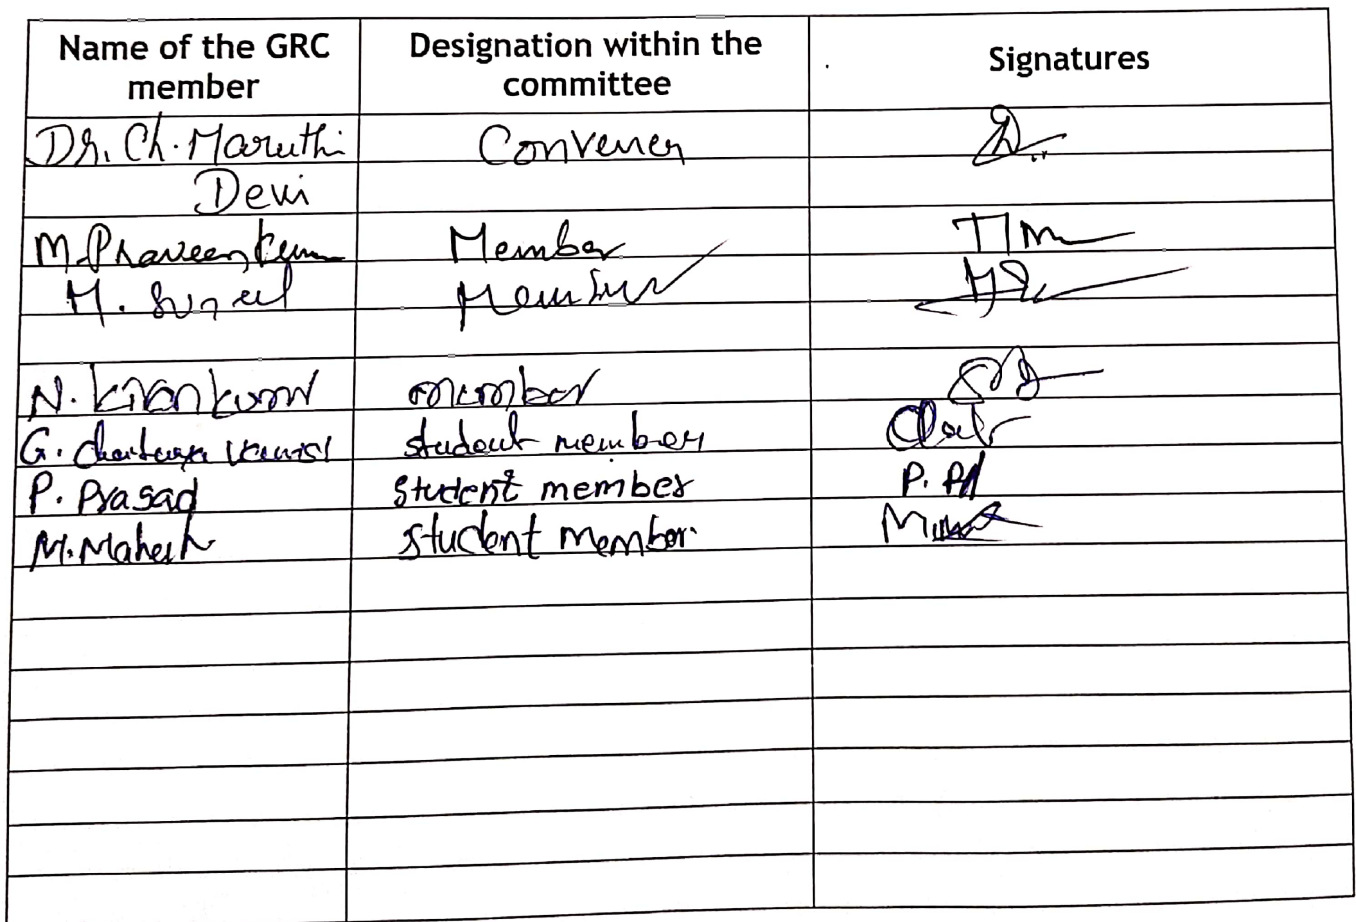 Name of the GRC member
Designation within the committee
Signatures
Dr. Ch. Maruthi Devi
Convener
M. Praveen Kumar
Member
M. Suneel
Member
N. Kiran kumar
member
G. Chaitanya Vamsi
student member
P. Prasad
Student member
P. Pd
M. Mahesh
student member